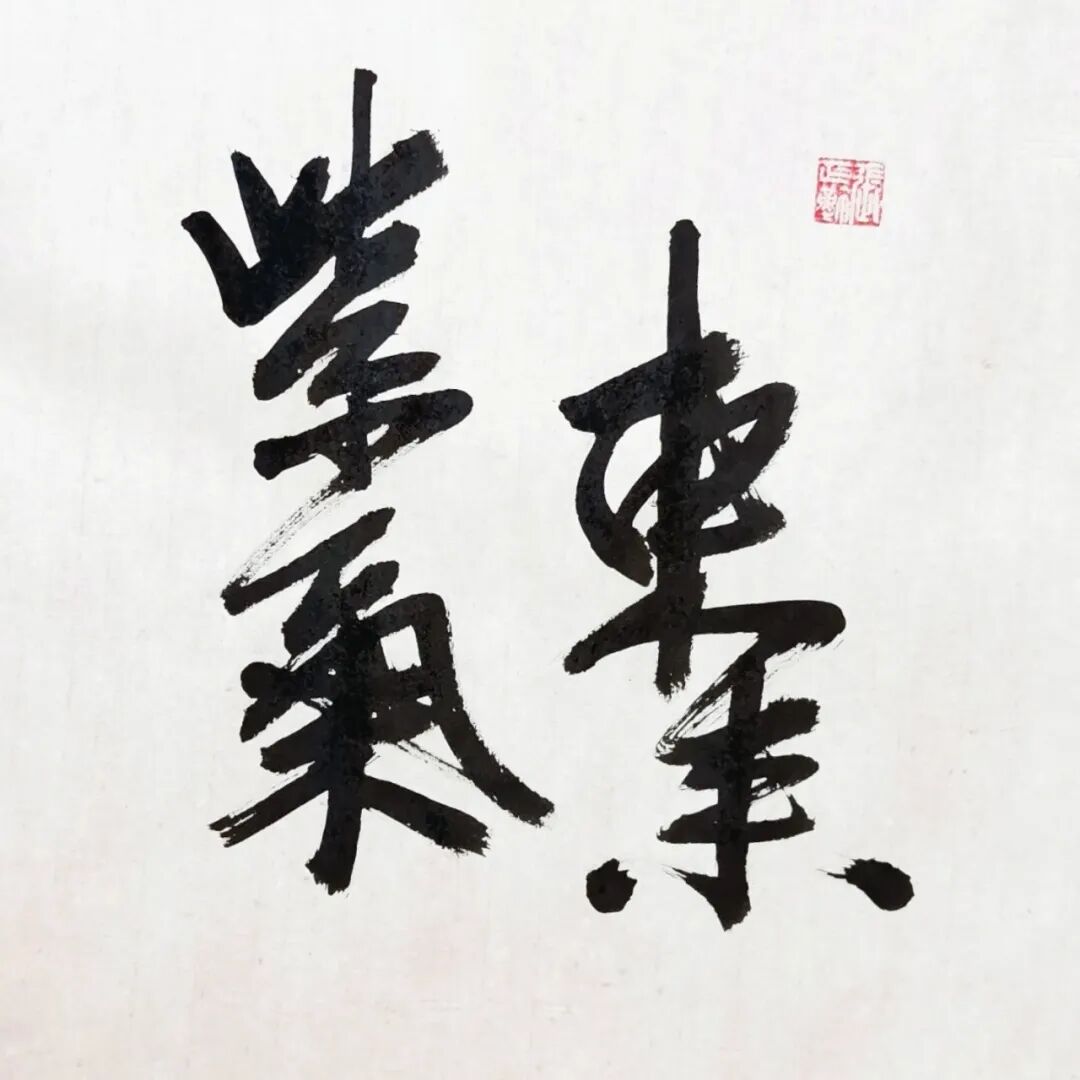 東來
紫氣